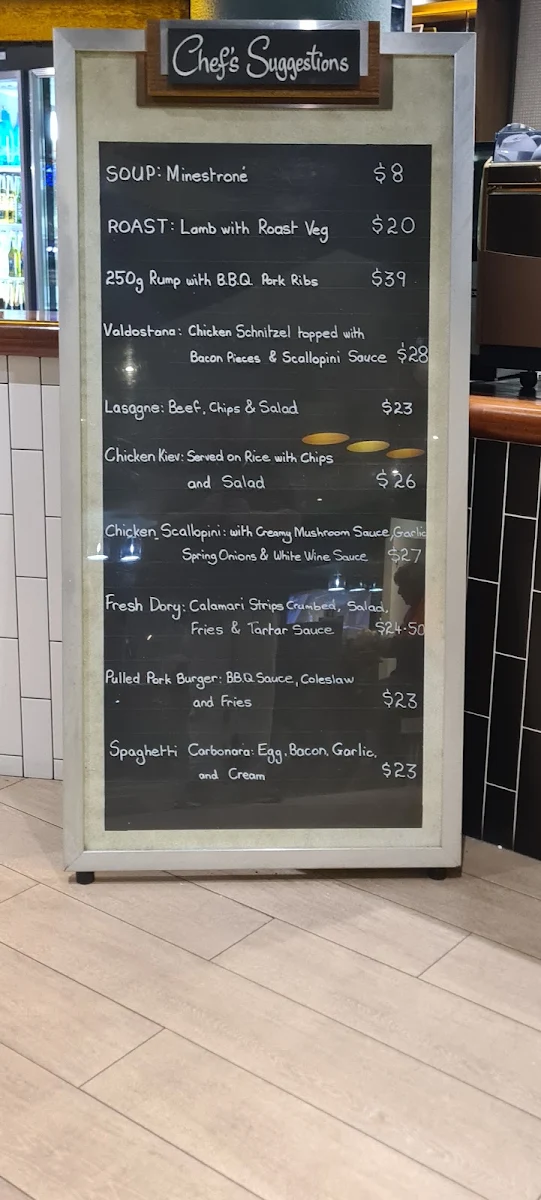 Chef's Suggestions
SOUP: Minestroné $8
ROAST: Lamb with Roast Veg $20
250g Rump with B.B.Q. Pork Ribs $39
Valdostana: Chicken Schnitzel topped with
Bacon Pieces & Scallopini Sauce $28
Lasagne: Beef, Chips & Salad $23
Chicken Kiev: Served on Rice with Chips
and Salad $26
Chicken Scallopini: with Creamy Mushroom Sauce, Garlic
Spring Onions & White Wine Sauce $27
Fresh Dory: Calamari Strips Crumbed, Salad,
Fries & Tartar Sauce $24.50
Pulled Pork Burger: BBQ Sauce, Coleslaw
and Fries $23
Spaghetti Carbonara: Egg, Bacon, Garlic,
and Cream $23